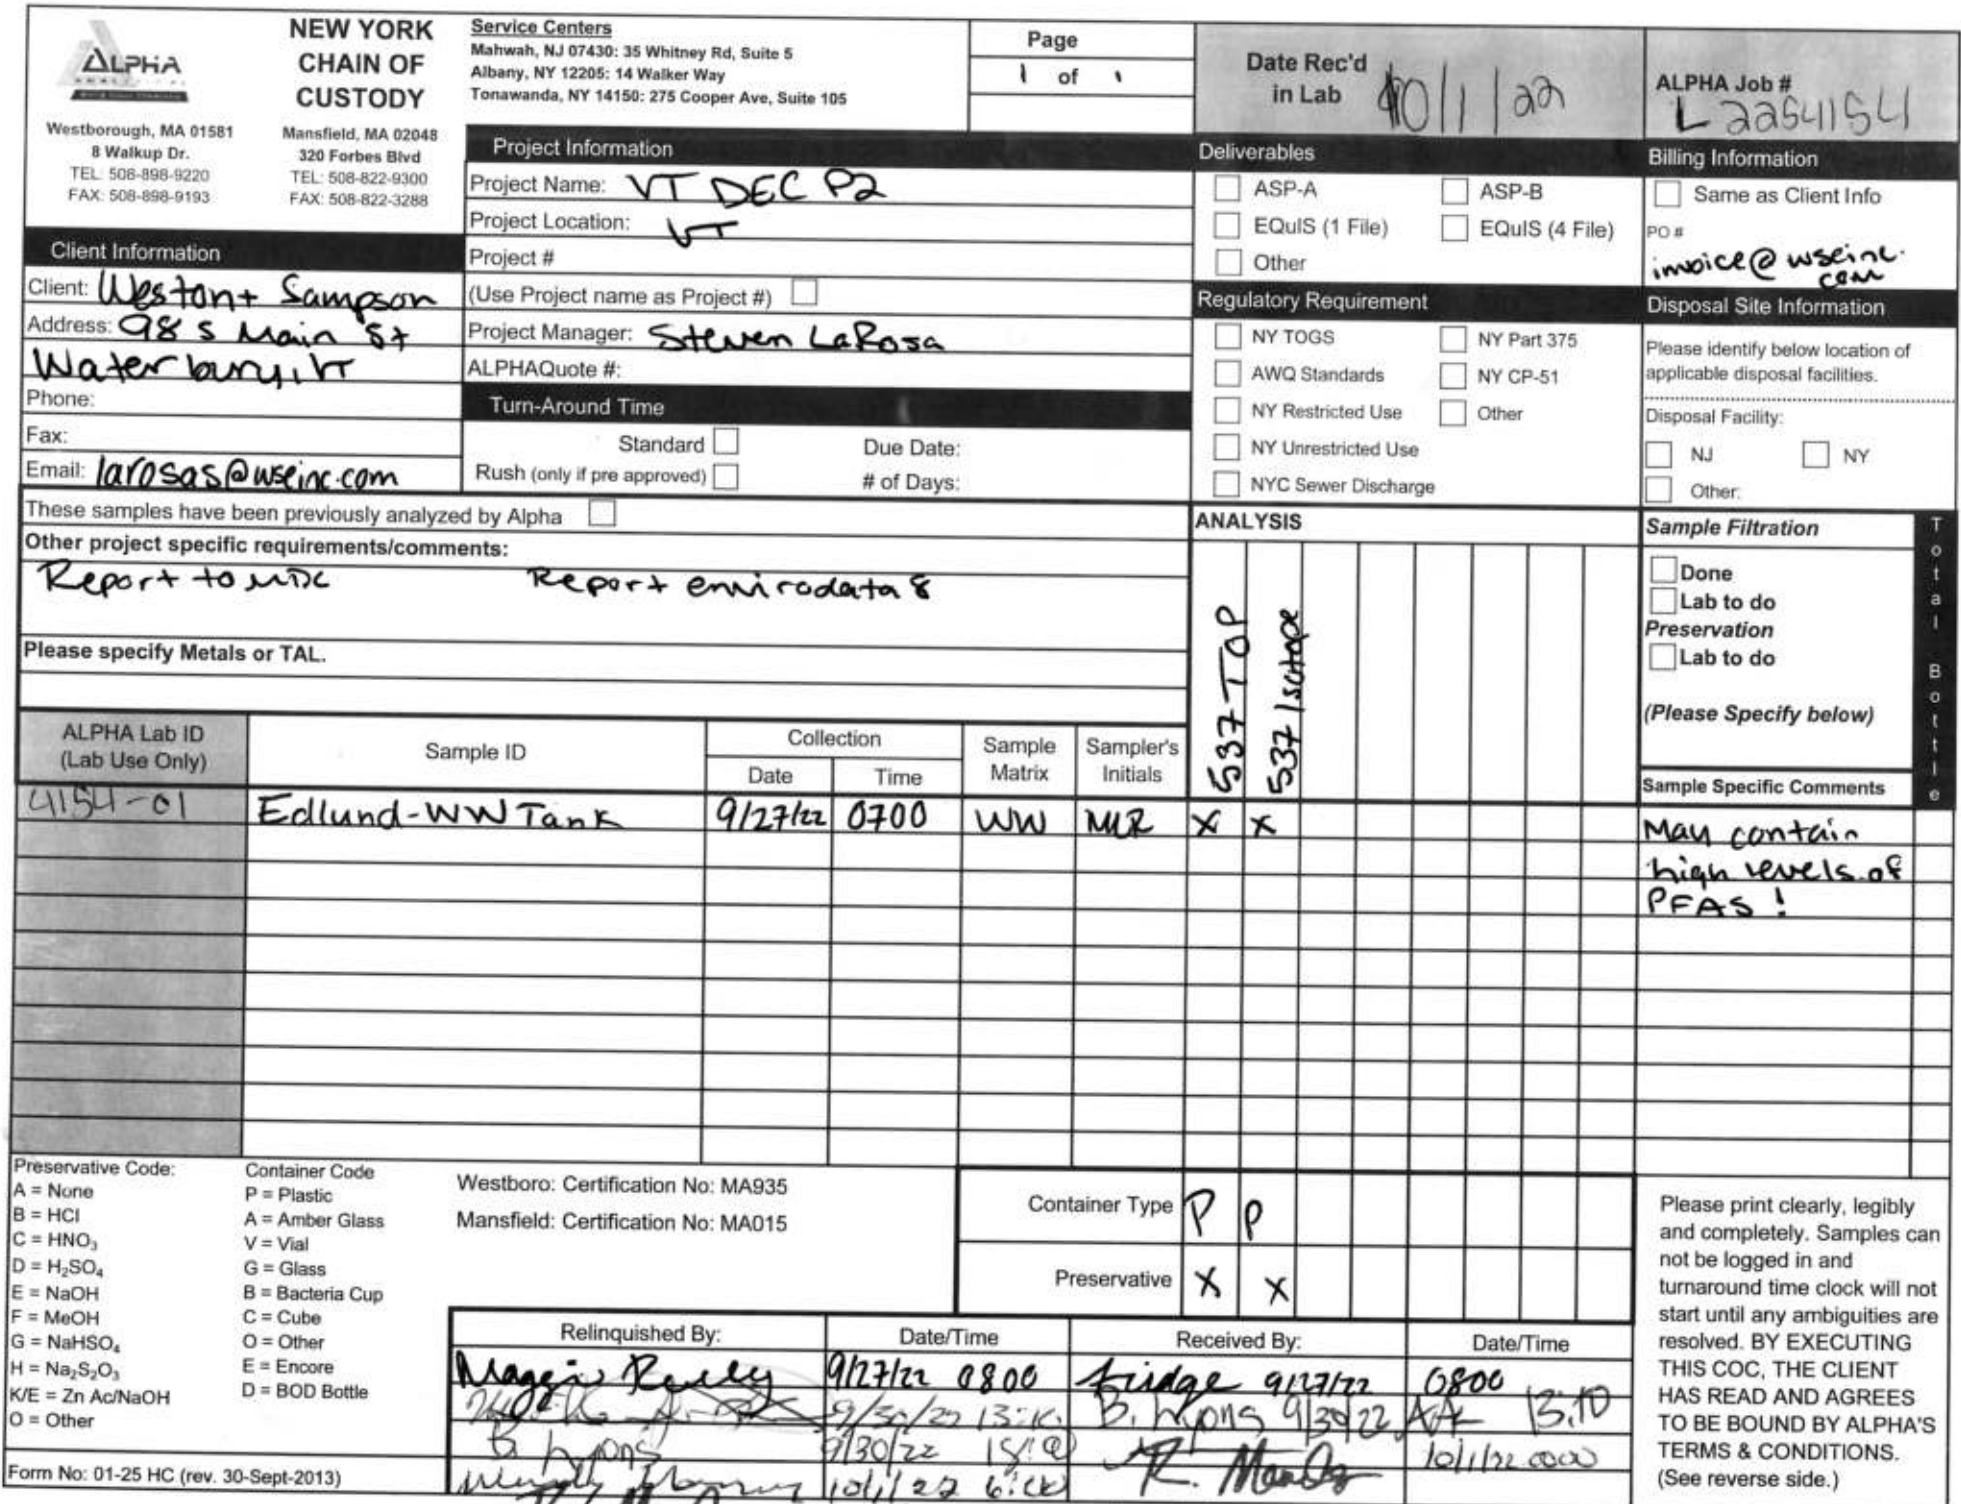 ALPHA
ANALYTICAL
Westborough, MA 01581
8 Walkup Dr.
TEL: 508-898-9220
FAX: 508-898-9193
NEW YORK
CHAIN OF
CUSTODY
Mansfield, MA 02048
320 Forbes Blvd
TEL: 508-822-9300
FAX: 508-822-3288
Service Centers
Mahwah, NJ 07430: 35 Whitney Rd, Suite 5
Albany, NY 12205: 14 Walker Way
Tonawanda, NY 14150: 275 Cooper Ave, Suite 105
Page
1 of 1
Date Rec'd
in Lab
10/1/22
ALPHA Job #
L2254154
Client Information
Client: Weston + Sampson
Address: 98 S Main St
Waterbury, VT
Phone:
Fax:
Email: larosas@wseinc.com
Project Information
Project Name: VT DEC P2
Project Location: VT
Project #
(Use Project name as Project #)
Project Manager: Steven LaRosa
ALPHAQuote #:
Turn-Around Time
Standard Due Date:
Rush (only if pre approved) # of Days:
Deliverables
ASP-A ASP-B
EQuIS (1 File) EQuIS (4 File)
Other
Regulatory Requirement
NY TOGS NY Part 375
AWQ Standards NY CP-51
NY Restricted Use Other
NY Unrestricted Use
NYC Sewer Discharge
Billing Information
Same as Client Info
PO #
invoice@wseinc.
com
Disposal Site Information
Please identify below location of
applicable disposal facilities.
Disposal Facility:
NJ NY
Other:
These samples have been previously analyzed by Alpha
Other project specific requirements/comments:
Report to Report envirodata 8
Please specify Metals or TAL.
ANALYSIS
537 TOP
537 Isotope
Sample Filtration
Done
Lab to do
Preservation
Lab to do
(Please Specify below)
Total Bottle
ALPHA Lab ID
(Lab Use Only)
Sample ID
Collection
Date Time
Sample
Matrix
Sampler's
Initials
Sample Specific Comments
4154-01 Edlund-WW Tank 9/27/22 0700 WW MLR X X May contain
high levels of
PFAS !
Preservative Code:
A = None
B = HCl
C = HNO₃
D = H₂SO₄
E = NaOH
F = MeOH
G = NaHSO₄
H = Na₂S₂O₃
K/E = Zn Ac/NaOH
O = Other
Container Code
P = Plastic
A = Amber Glass
V = Vial
G = Glass
B = Bacteria Cup
C = Cube
O = Other
E = Encore
D = BOD Bottle
Westboro: Certification No: MA935
Mansfield: Certification No: MA015
Container Type P P
Preservative X X
Relinquished By: Date/Time Received By: Date/Time
Maggie 9/27/22 0800 fridge 9/27/22 0800
9/30/22 B. Lyons 9/30/22 13:10
B. Lyons 9/30/22 R. 10/1/22 0000
10/1/22
Please print clearly, legibly
and completely. Samples can
not be logged in and
turnaround time clock will not
start until any ambiguities are
resolved. BY EXECUTING
THIS COC, THE CLIENT
HAS READ AND AGREES
TO BE BOUND BY ALPHA'S
TERMS & CONDITIONS.
(See reverse side.)
Form No: 01-25 HC (rev. 30-Sept-2013)